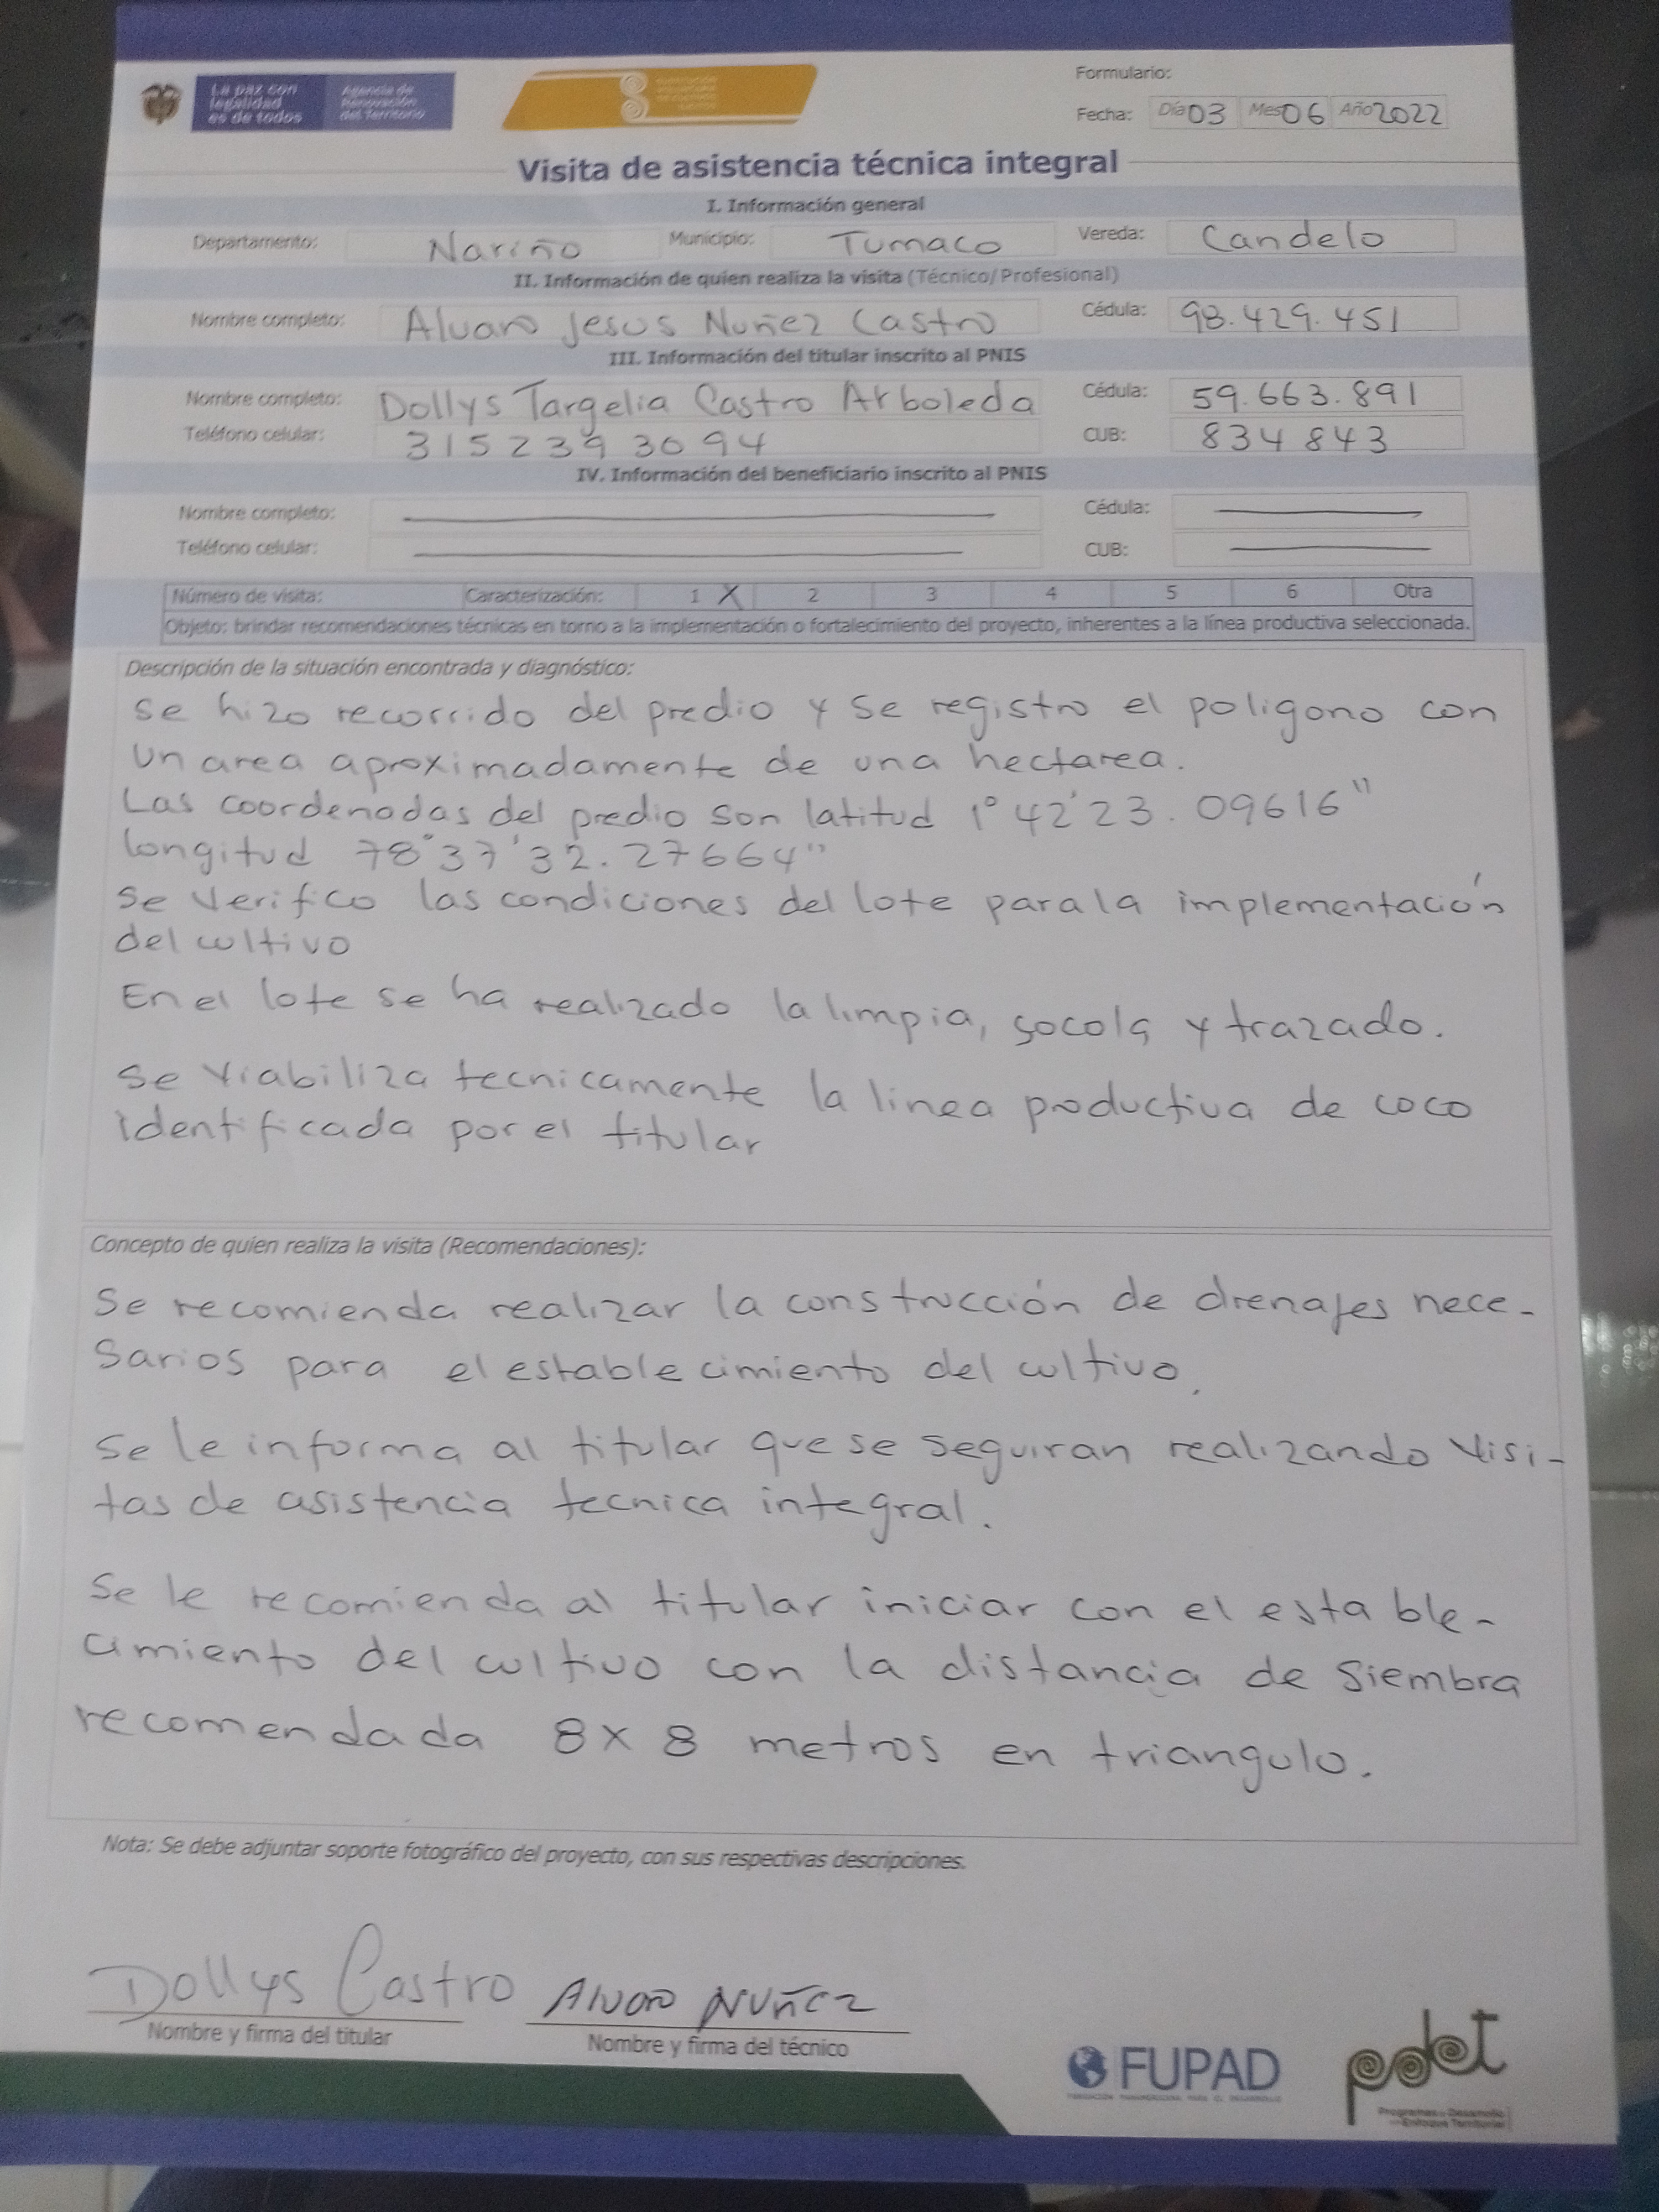 La paz con
legalidad
es de todos
Agencia de
Renovación
del Territorio
Formulario:
Fecha: Día 03 Mes 06 Año 2022
Visita de asistencia técnica integral
I. Información general
Departamento: Nariño Municipio: Tumaco Vereda: Candelo
II. Información de quien realiza la visita (Técnico/Profesional)
Nombre completo: Alvaro Jesus Nuñez Castro Cédula: 98.429.451
III. Información del titular inscrito al PNIS
Nombre completo: Dollys Targelia Castro Arboleda Cédula: 59.663.891
Teléfono celular: 315 239 3094 CUB: 834843
IV. Información del beneficiario inscrito al PNIS
Nombre completo: Cédula:
Teléfono celular: CUB:
Número de visita: Caracterización: 1 X 2 3 4 5 6 Otra
Objeto: brindar recomendaciones técnicas en torno a la implementación o fortalecimiento del proyecto, inherentes a la línea productiva seleccionada.
Descripción de la situación encontrada y diagnóstico:
Se hizo recorrido del predio y se registro el poligono con
un area aproximadamente de una hectarea.
Las coordenadas del predio son latitud 1° 42' 23.09616"
longitud 78° 37' 32.27664"
Se verifico las condiciones del lote para la implementación
del cultivo
En el lote se ha realizado la limpia, socola y trazado.
Se viabiliza tecnicamente la linea productiva de coco
identificada por el titular
Concepto de quien realiza la visita (Recomendaciones):
Se recomienda realizar la construcción de drenajes nece-
sarios para el establecimiento del cultivo.
Se le informa al titular que se seguiran realizando visi-
tas de asistencia tecnica integral.
Se le recomienda al titular iniciar con el estable-
cimiento del cultivo con la distancia de siembra
recomendada 8 x 8 metros en triangulo.
Nota: Se debe adjuntar soporte fotográfico del proyecto, con sus respectivas descripciones.
Dollys Castro Alvaro Nuñez
Nombre y firma del titular Nombre y firma del técnico
FUPAD
pdet